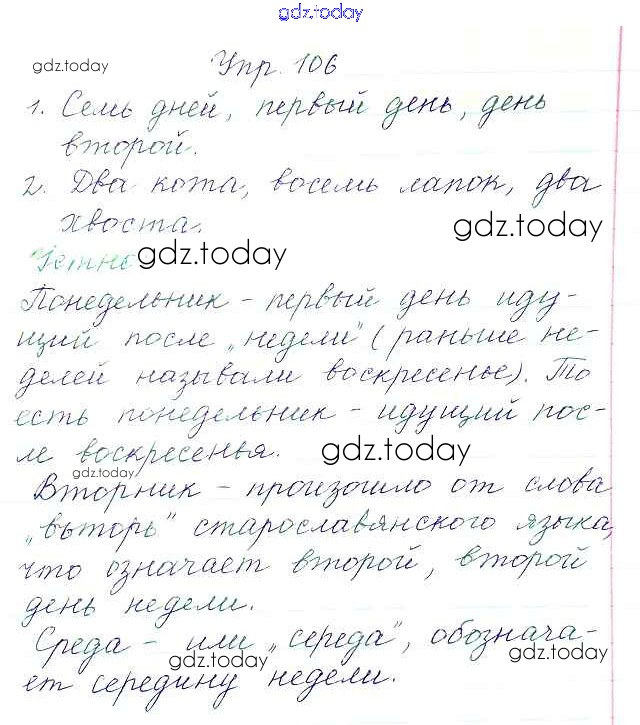 gdz.today
gdz.today Упр. 106
1. Семь дней, первый день, день
второй.
2. Два кота, восемь лапок, два
хвоста.
gdz.today
Устно gdz.today
Понедельник - первый день иду-
щий после „недели" (раньше не-
делей называли воскресенье). То
есть понедельник - идущий пос-
ле воскресенья.
gdz.today
gdz.today
Вторник - произошло от слова
„въторь" старославянского языка,
что означает второй, второй
день недели.
Среда - или „середа", обознача-
gdz.today gdz.today
ет середину недели.